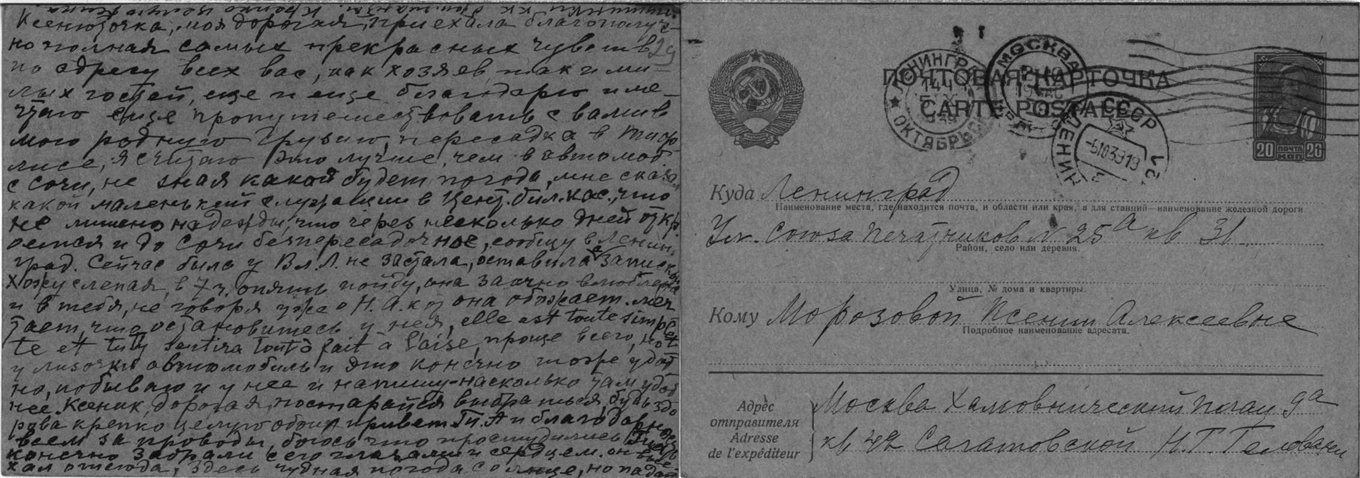 Ксенюзочка, моя дорогая, приехала благополуч-
но полная самых прекрасных чувств
по адресу всех вас, как хозяев так и ми-
лых гостей, еще и еще благодарю и ме-
чтаю еще пропутешествовать с вами в
мою родную Грузию, пересадка в Тиф-
лисе, я считаю это лучше, чем в автомоб.
с Сочи, не зная какой будет погода, мне сказал
какой маленький служащий в Цент. бил. кас., что
не лишено надежды, что через несколько дней откр
оется и до Сочи безпересадочное, сообщу в Ленин-
град. Сейчас была у Вл. Л. не застала, оставила записку
Хожу слепая, в 7 ч. опять пойду, она заочно влюблена
и в тебя, не говоря уже о Н. А. она обожает. меч-
тает, что остановитесь у нея, elle est toute simple
te et tu sentira tout à fait à l'aise, проще всего,
у Лизочки автомобиль и это конечно тоже удоб
но, побываю и у нее и напишу насколько там удоб
нее. Ксеник, дорогая, постарайся выбраться, будь здо
рова крепко целую обоих привет и благодар
всем за проводы, боюсь что простудились
конечно забрали его глазами и сердцем. он
хал отсюда, здесь чудная погода солнце, но
ПОЧТОВАЯ КАРТОЧКА
CARTE POSTALE
ЛЕНИНГРАД
ОКТЯБРЬСК
МОСКВА
СССР
20 ПОЧТА КОП 20
Куда Ленинград
Наименование места, где находится почта, и области или края, а для станций наименование железной дороги
Ул. Союза Печатников № 25а кв 31
Район, село или деревня.
Улица, № дома и квартиры.
Кому Морозовой Ксении Алексеевне
Подробное наименование адресата.
Адрес
отправителя
Adresse
de l'expéditeur
Москва Хамовнический плац 9а
кв 42 Сагатовской Н. Г.